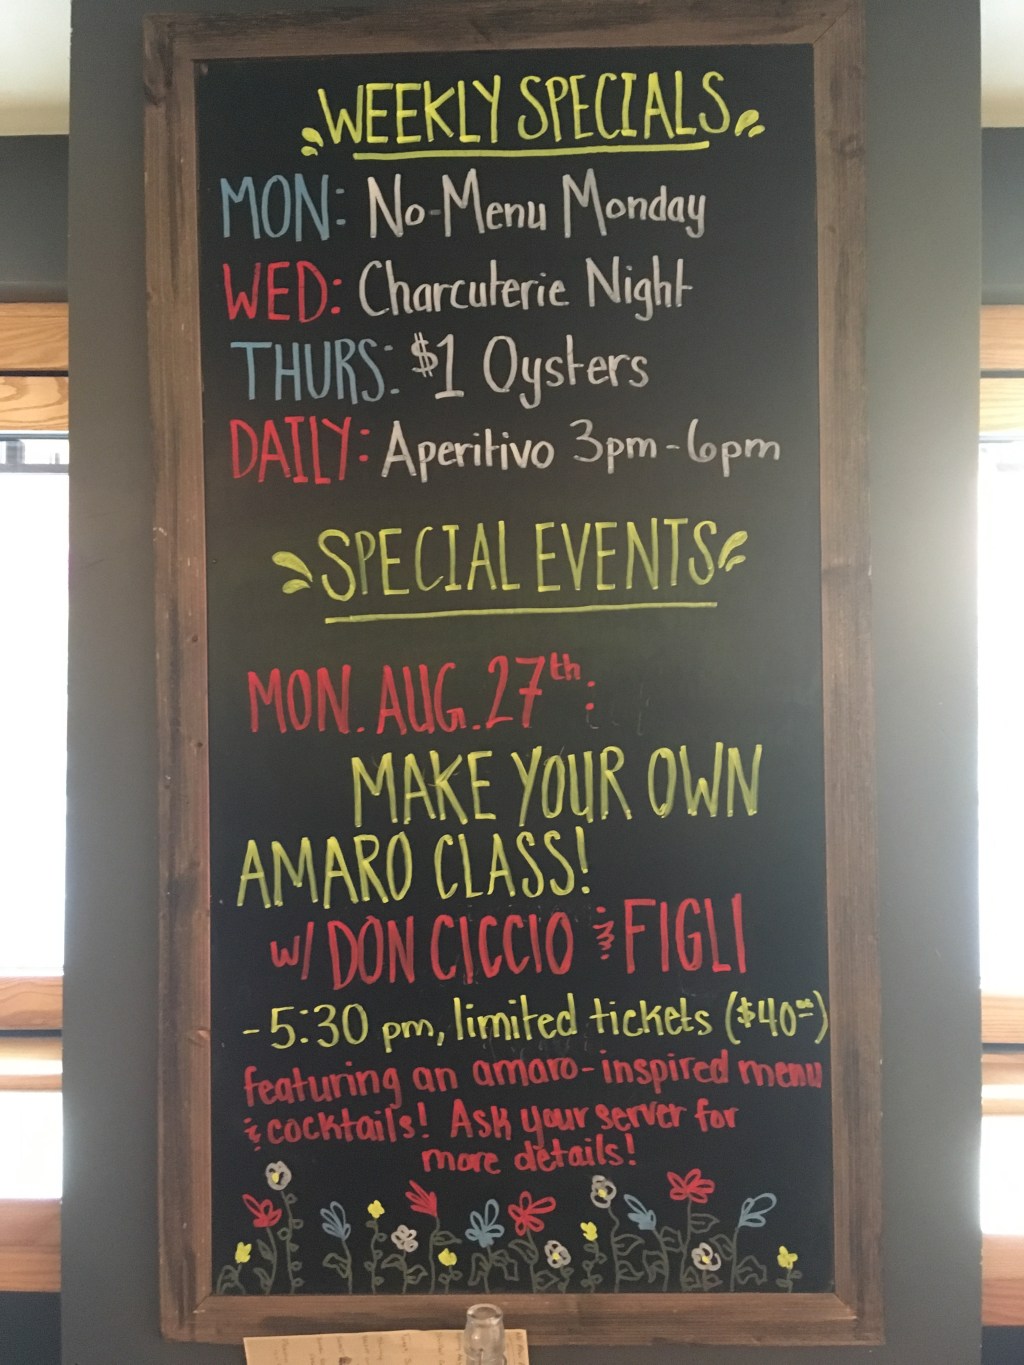 WEEKLY SPECIALS
MON: No-Menu Monday
WED: Charcuterie Night
THURS: $1 Oysters
DAILY: Aperitivo 3pm-6pm
SPECIAL EVENTS
MON. AUG. 27th:
MAKE YOUR OWN
AMARO CLASS!
w/ DON CICCIO & FIGLI
- 5:30 pm, limited tickets ($40⁰⁰)
featuring an amaro-inspired menu
& cocktails! Ask your server for
more details!